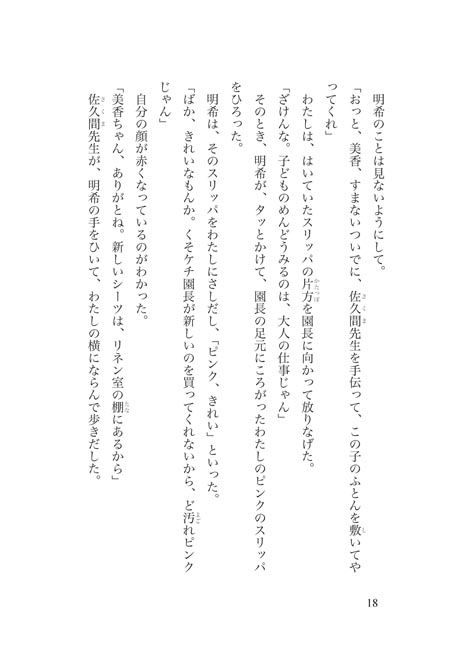 明希のことは見ないようにして。
「おっと、美香、すまないついでに、佐久間先生を手伝って、この子のふとんを敷いてや
ってくれ」
わたしは、はいていたスリッパの片方を園長に向かって放りなげた。
「ざけんな。子どものめんどうみるのは、大人の仕事じゃん」
そのとき、明希が、タッとかけて、園長の足元にころがったわたしのピンクのスリッパ
をひろった。
明希は、そのスリッパをわたしにさしだし、「ピンク、きれい」といった。
「ばか、きれいなもんか。くそケチ園長が新しいのを買ってくれないから、ど汚れピンク
じゃん」
自分の顔が赤くなっているのがわかった。
「美香ちゃん、ありがとね。新しいシーツは、リネン室の棚にあるから」
佐久間先生が、明希の手をひいて、わたしの横にならんで歩きだした。
18